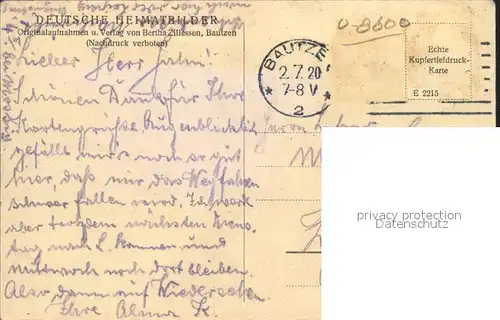 U-8600
DEUTSCHE HEIMATBILDER
Originalaufnahmen u. Verlag von Bertha Zillessen, Bautzen
(Nachdruck verboten)
Echte
Kupfertiefdruck-
Karte
E 2215
BAUTZEN
2.7.20
7-8 V
2
Lieber Herr
Schönen Dank für Ihre
Kartengrüße. Augenblicklich
gefällt mir's noch so gut
hier, daß mir das Wegfahren
schwer fallen wird. Ich werde
aber trotzdem nächsten Diens-
tag nach L. kommen und
mittwoch noch dort bleiben.
Also dann auf Wiedersehen.
Ihre Alma K.
privacy protection
Datenschutz